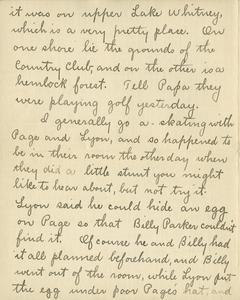 it was on upper Lake Whitney,
which is a very pretty place. On
one shore lie the grounds of the
Country Club, and on the other is a
hemlock forest. Tell Papa they
were playing golf yesterday.
I generally go a-skating with
Page and Lyon, and so happened to
be in their room the other day when
they did a little stunt you might
like to hear about, but not try it.
Lyon said he could hide an egg
on Page so that Billy Parker couldn't
find it. Of course he and Billy had
it all planned beforehand, and Billy
went out of the room, while Lyon put
the egg under poor Page's hat, and